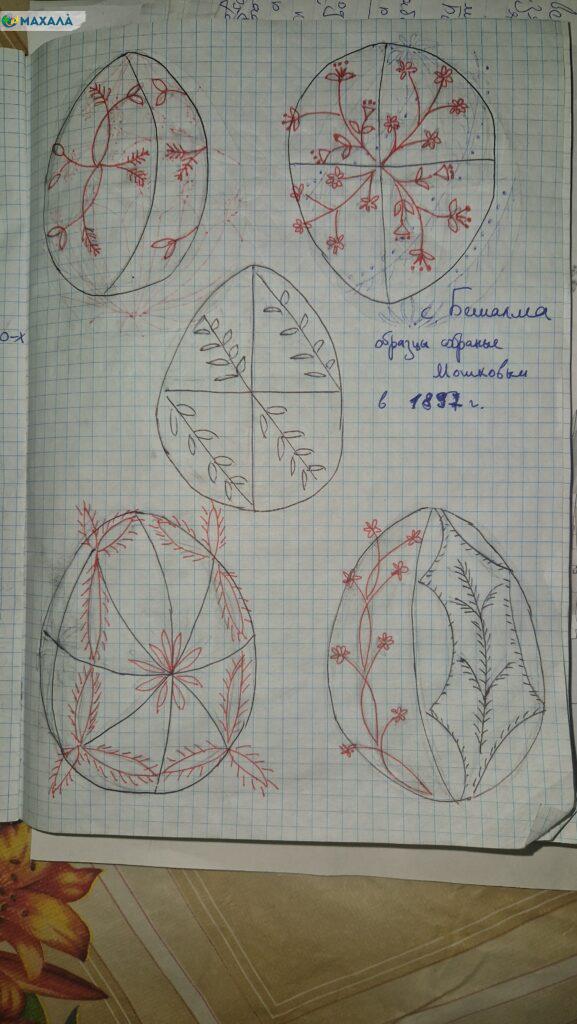 МАХАЛÀ
с. Бешалма
образцы собраные
Мошковым
в 1897 г.
о-х